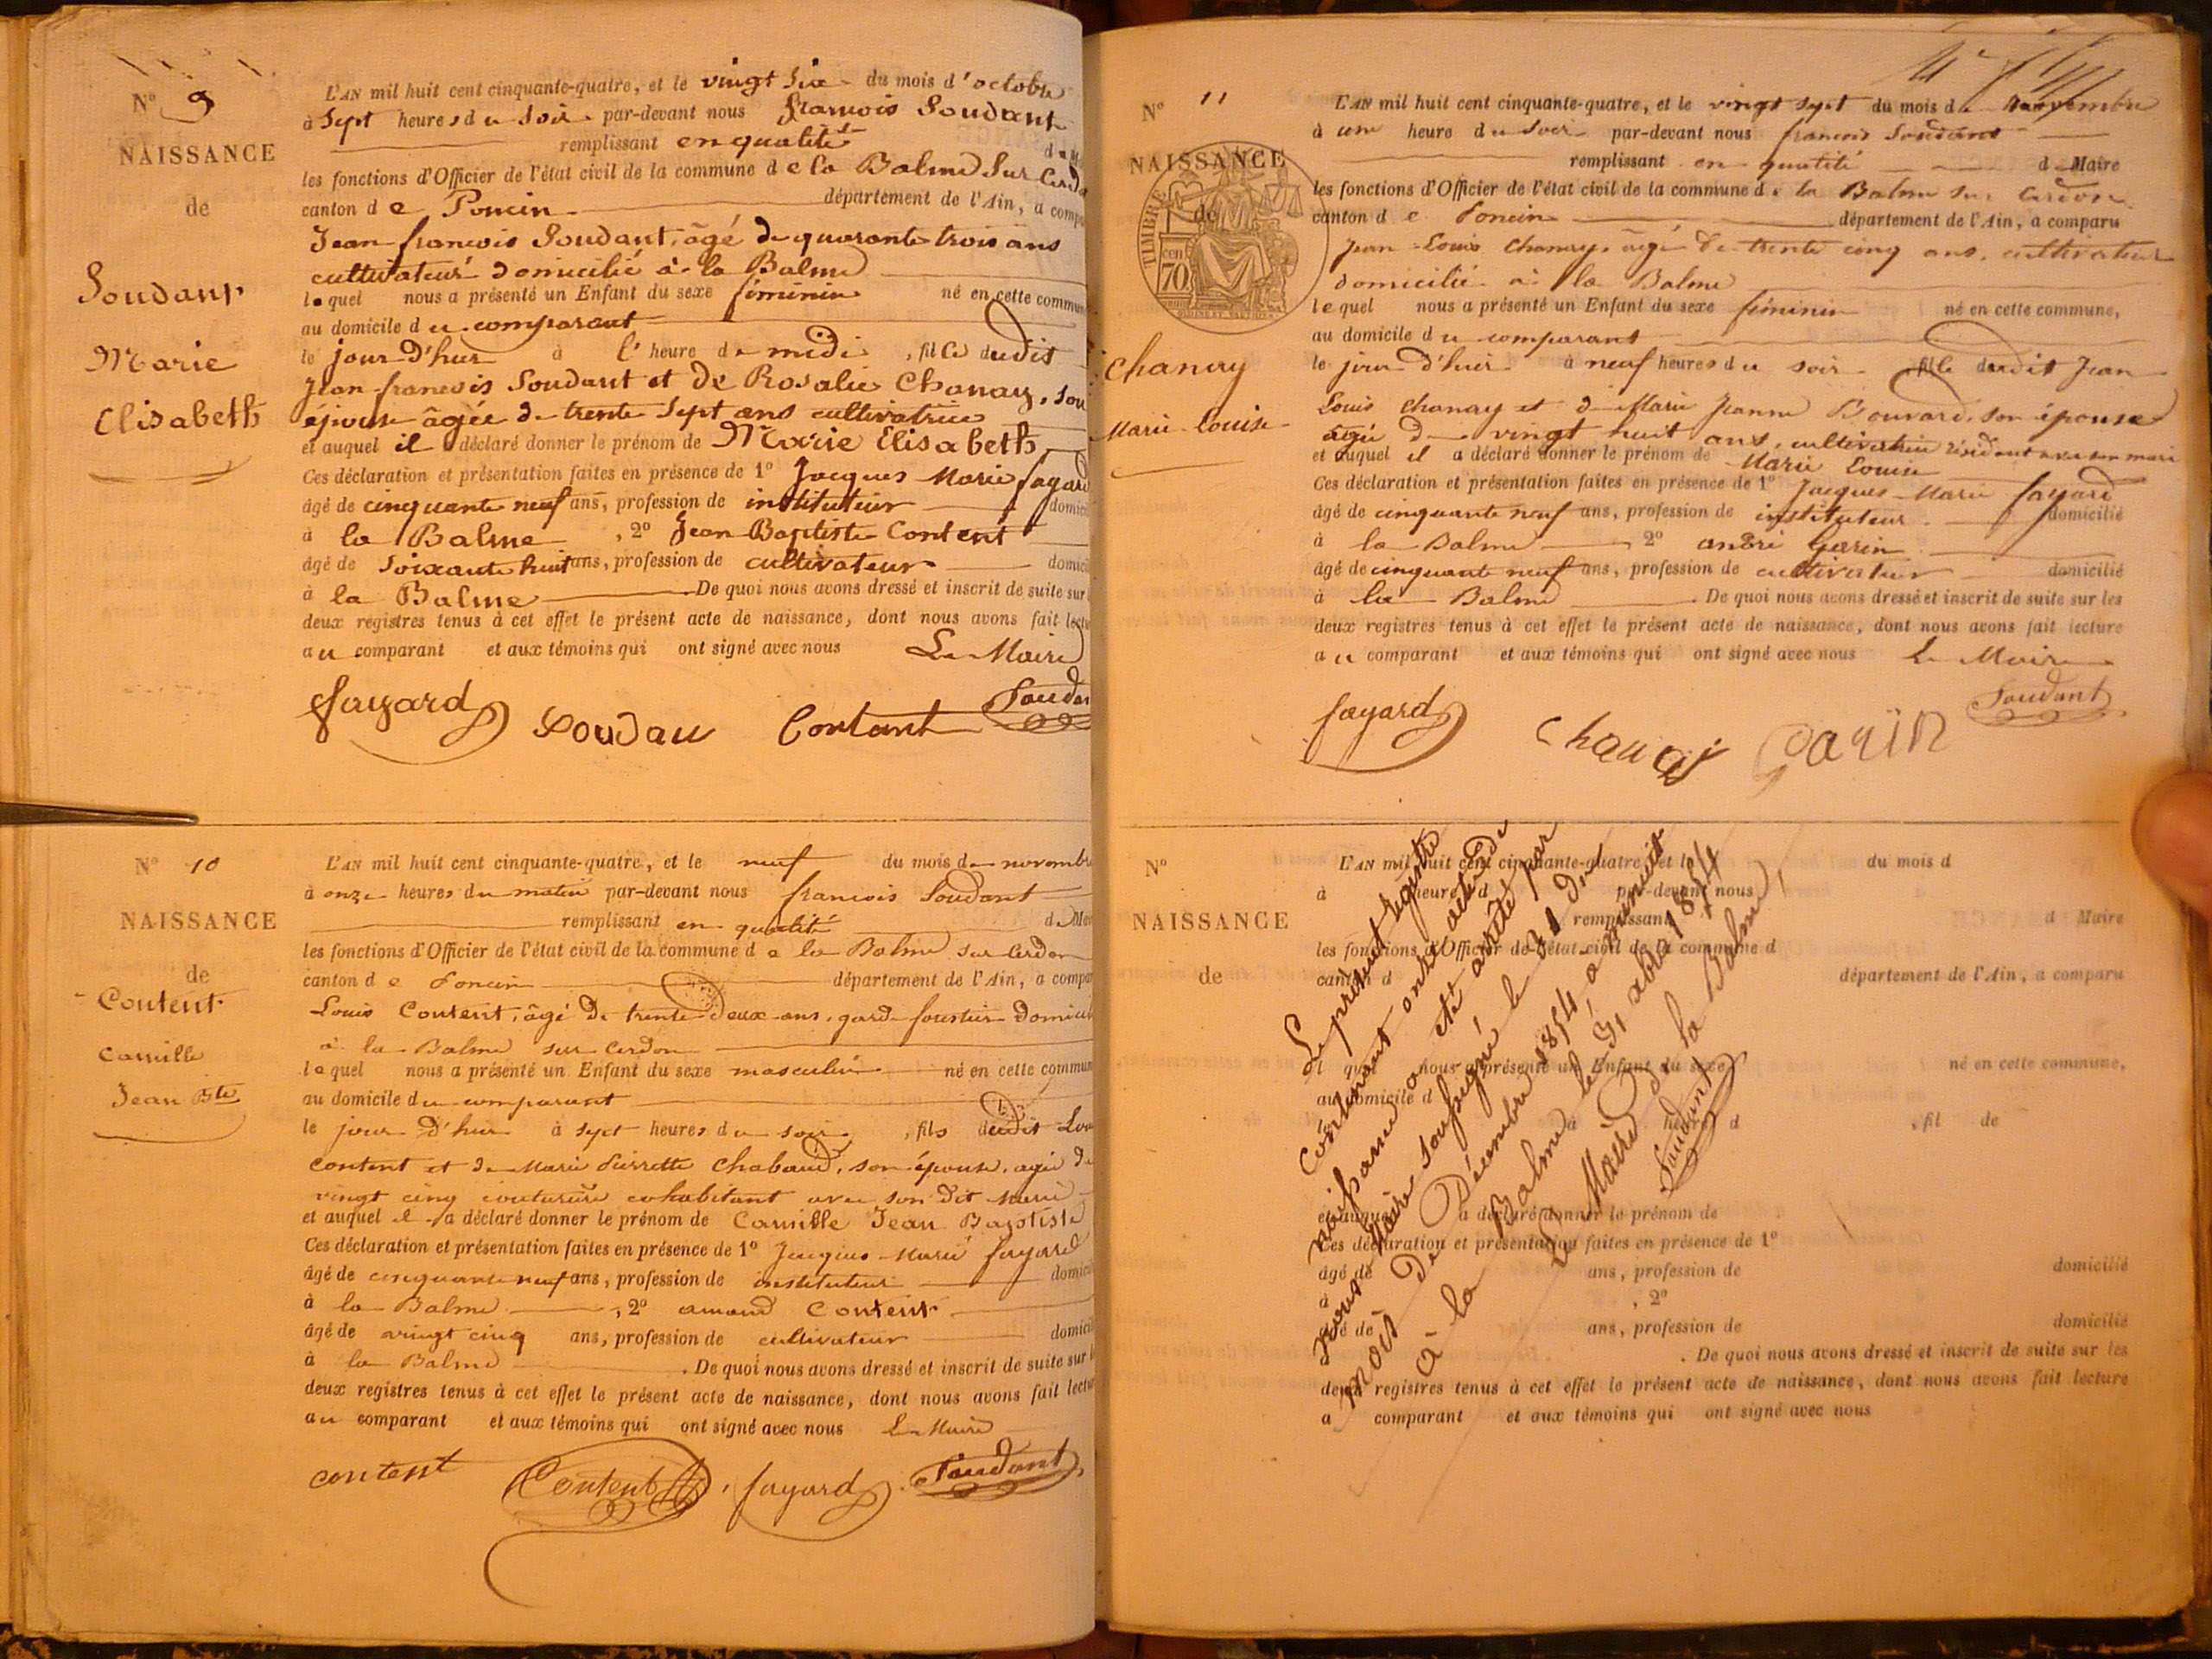 N° 9
NAISSANCE
de
Soudant
Marie
Elisabeth
L'AN mil huit cent cinquante-quatre, et le vingt six du mois d'octobre
à sept heures du soir par-devant nous françois Soudant
remplissant en qualité
les fonctions d'Officier de l'état civil de la commune de la Balme sur Cerdo
canton de Poncin département de l'Ain, a compa
Jean-françois Soudant, âgé de quarante trois ans
cultivateur domicilié à la Balme
lequel nous a présenté un Enfant du sexe féminin né en cette commun
au domicile du comparant
le jour d'hier à l'heure de midi, fille dudit
Jean-francois Soudant et de Rosalie Chanay, son
épouse âgée de trente sept ans cultivatrice
et auquel il a déclaré donner le prénom de Marie Elisabeth
Ces déclaration et présentation faites en présence de 1° Jacques Marie fayard
âgé de cinquante neuf ans, profession de instituteur domici
à la Balme, 2° Jean-Baptiste Content
âgé de soixante huit ans, profession de cultivateur domici
à la Balme. De quoi nous avons dressé et inscrit de suite sur l
deux registres tenus à cet effet le présent acte de naissance, dont nous avons fait lectu
au comparant et aux témoins qui ont signé avec nous Le Maire
fayard Soudau Contant Soudan
N° 10
NAISSANCE
de
Content
Camille
Jean Bte
L'AN mil huit cent cinquante-quatre, et le neuf du mois de novembr
à onze heures du matin par-devant nous francois Soudant
remplissant en qualité de Mai
les fonctions d'Officier de l'état civil de la commune de la Balme sur Cerdon
canton de Poncin département de l'Ain, a compa
Louis Content, âgé de trente deux ans, garde forestier domicil
à la Balme sur Cerdon
lequel nous a présenté un Enfant du sexe masculin né en cette commun
au domicile du comparant
le jour d'hier à sept heures du soir, fils dudit Lou
content et de Marie Pierrette Chaband, son épouse, agée de
vingt cinq couturière cohabitant avec son dit mari
et auquel il a déclaré donner le prénom de Camille Jean Baptiste
Ces déclaration et présentation faites en présence de 1° Jacques Marie fayard
âgé de cinquante neuf ans, profession de instituteur domici
à la Balme, 2° amand Content
âgé de vingt cinq ans, profession de cultivateur domicil
à la Balme. De quoi nous avons dressé et inscrit de suite sur l
deux registres tenus à cet effet le présent acte de naissance, dont nous avons fait lectu
au comparant et aux témoins qui ont signé avec nous Le Maire
content Content fayard Soudant
N° 11
NAISSANCE
de
TIMBRE
70
Chanay
Marie-Louise
L'AN mil huit cent cinquante-quatre, et le vingt sept du mois de novembre
à une heure du soir par-devant nous francois Soudant
remplissant en qualité de Maire
les fonctions d'Officier de l'état civil de la commune de la Balme sur Cerdon
canton de Poncin département de l'Ain, a comparu
Jean-Louis Chanay, âgé de trente cinq ans, cultivateur
domicilié à la Balme
lequel nous a présenté un Enfant du sexe féminin né en cette commune,
au domicile du comparant
le jour d'hier à neuf heures du soir, fille dudit Jean
Louis Chanay et de Marie Jeanne Bouvard, son épouse
agée de vingt huit ans, cultivatrice résidant avec son mari
et auquel il a déclaré donner le prénom de Marie Louise
Ces déclaration et présentation faites en présence de 1° Jacques-Marie fayard
âgé de cinquante neuf ans, profession de instituteur domicilié
à la Balme 2° andré Garin
âgé de cinquante neuf ans, profession de cultivateur domicilié
à la Balme. De quoi nous avons dressé et inscrit de suite sur les
deux registres tenus à cet effet le présent acte de naissance, dont nous avons fait lecture
au comparant et aux témoins qui ont signé avec nous Le Maire
fayard Chanay Garin Soudant
N°
NAISSANCE
de
L'AN mil huit cent cinquante-quatre, et le du mois d
à heure d par-devant nous
remplissant d Maire
les fonctions d'Officier de l'état civil de la commune d
canton d département de l'Ain, a comparu
l quel nous a présenté un Enfant du sexe né en cette commune,
au domicile d
à heure d, fil de
et auquel a déclaré donner le prénom de
Ces déclaration et présentation faites en présence de 1°
âgé de ans, profession de domicilié
à, 2°
âgé de ans, profession de domicilié
à. De quoi nous avons dressé et inscrit de suite sur les
deux registres tenus à cet effet le présent acte de naissance, dont nous avons fait lecture
a comparant et aux témoins qui ont signé avec nous
Le présent registre
contenant onze actes de
naissance a été arrêté par
nous Maire soussigné le 31 du
mois de Décembre 1854 à minuit
à la Balme le 31 xbre 1854
Le Maire de la Balme,
Soudant